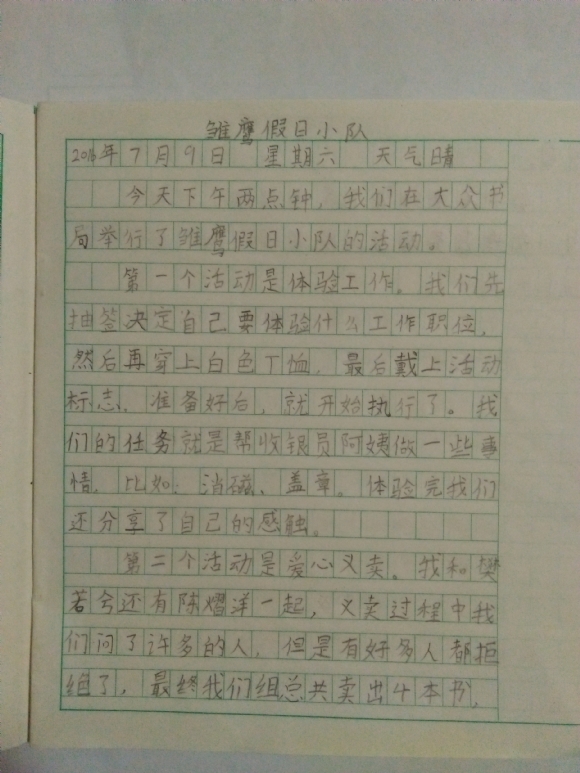 雏鹰假日小队
2016年7月9日 星期六 天气晴
今天下午两点钟，我们在大众书
局举行了雏鹰假日小队的活动。
第一个活动是体验工作。我们先
抽签决定自己要体验什么工作职位，
然后再穿上白色T恤，最后戴上活动
标志，准备好后，就开始执行了。我
们的任务就是帮收银员阿姨做一些事
情，比如：消磁、盖章。体验完我们
还分享了自己的感触。
第二个活动是爱心义卖。我和樊
若兮还有陈熠洋一起，义卖过程中我
们问了许多的人，但是有好多人都拒
绝了，最终我们组总共卖出4本书，